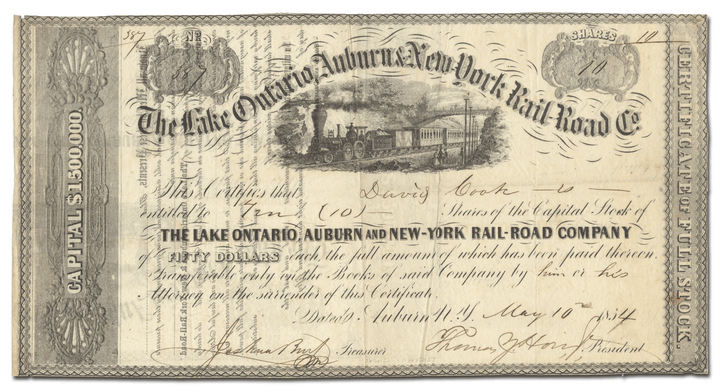 387
No
387
SHARES
10
10
The Lake Ontario, Auburn & New York Rail-Road Co.
CAPITAL $1,500,000.
CERTIFICATE OF FULL STOCK.
This Certifies that David Cook is
entitled to Ten (10) Shares of the Capital Stock of
THE LAKE ONTARIO, AUBURN AND NEW-YORK RAIL-ROAD COMPANY
of FIFTY DOLLARS each, the full amount of which has been paid thereon.
Transferable only on the Books of said Company by him or his
Attorney on the surrender of this Certificate.
Dated, Auburn N.Y. May 10 1854
Joshua Treasurer Thomas Y. How Jr President